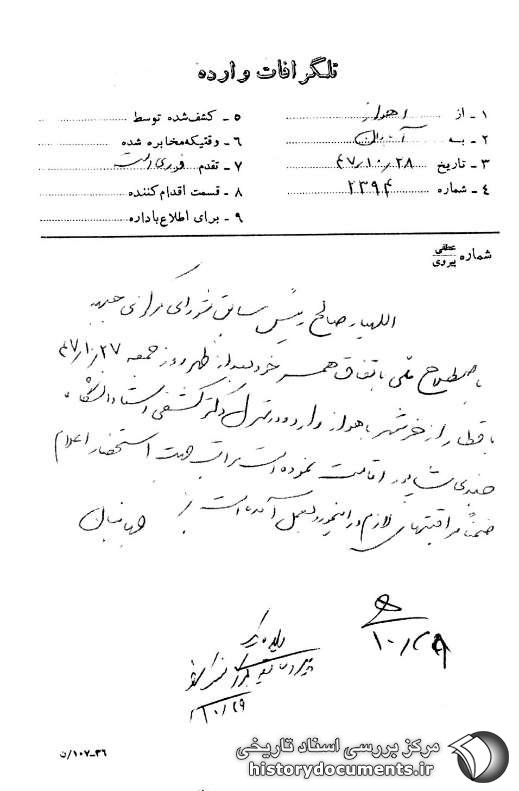 تلگرافات وارده
۱ - از اهواز
۲ - به
۳ - تاریخ ۴۷/۱۰/۲۸
۴ - شماره ۲۳۹۴
۵ - کشف شده توسط
۶ - وقتیکه مخابره شده
۷ - تقدم فوری است
۸ - قسمت اقدام کننده
۹ - برای اطلاع باداره
شماره عطفی پیروی
اللهیار صالح رئیس سابق شورای مرکزی جبهه
باصطلاح ملی باتفاق همسر خود بعد از ظهر روز جمعه ۴۷/۱۰/۲۷
با قطار از خرمشهر باهواز وارد و در منزل دکتر کشفی استاد دانشگاه
جندی شاپور اقامت نموده است مراتب جهت استحضار اعلام
ضمناً مراقبتهای لازم در اینمورد بعمل آمده است
جهانبان
۱۰/۲۹
۱۰/۲۹
۳۶-۱۰۷/ن
مرکز بررسی اسناد تاریخی
historydocuments.ir